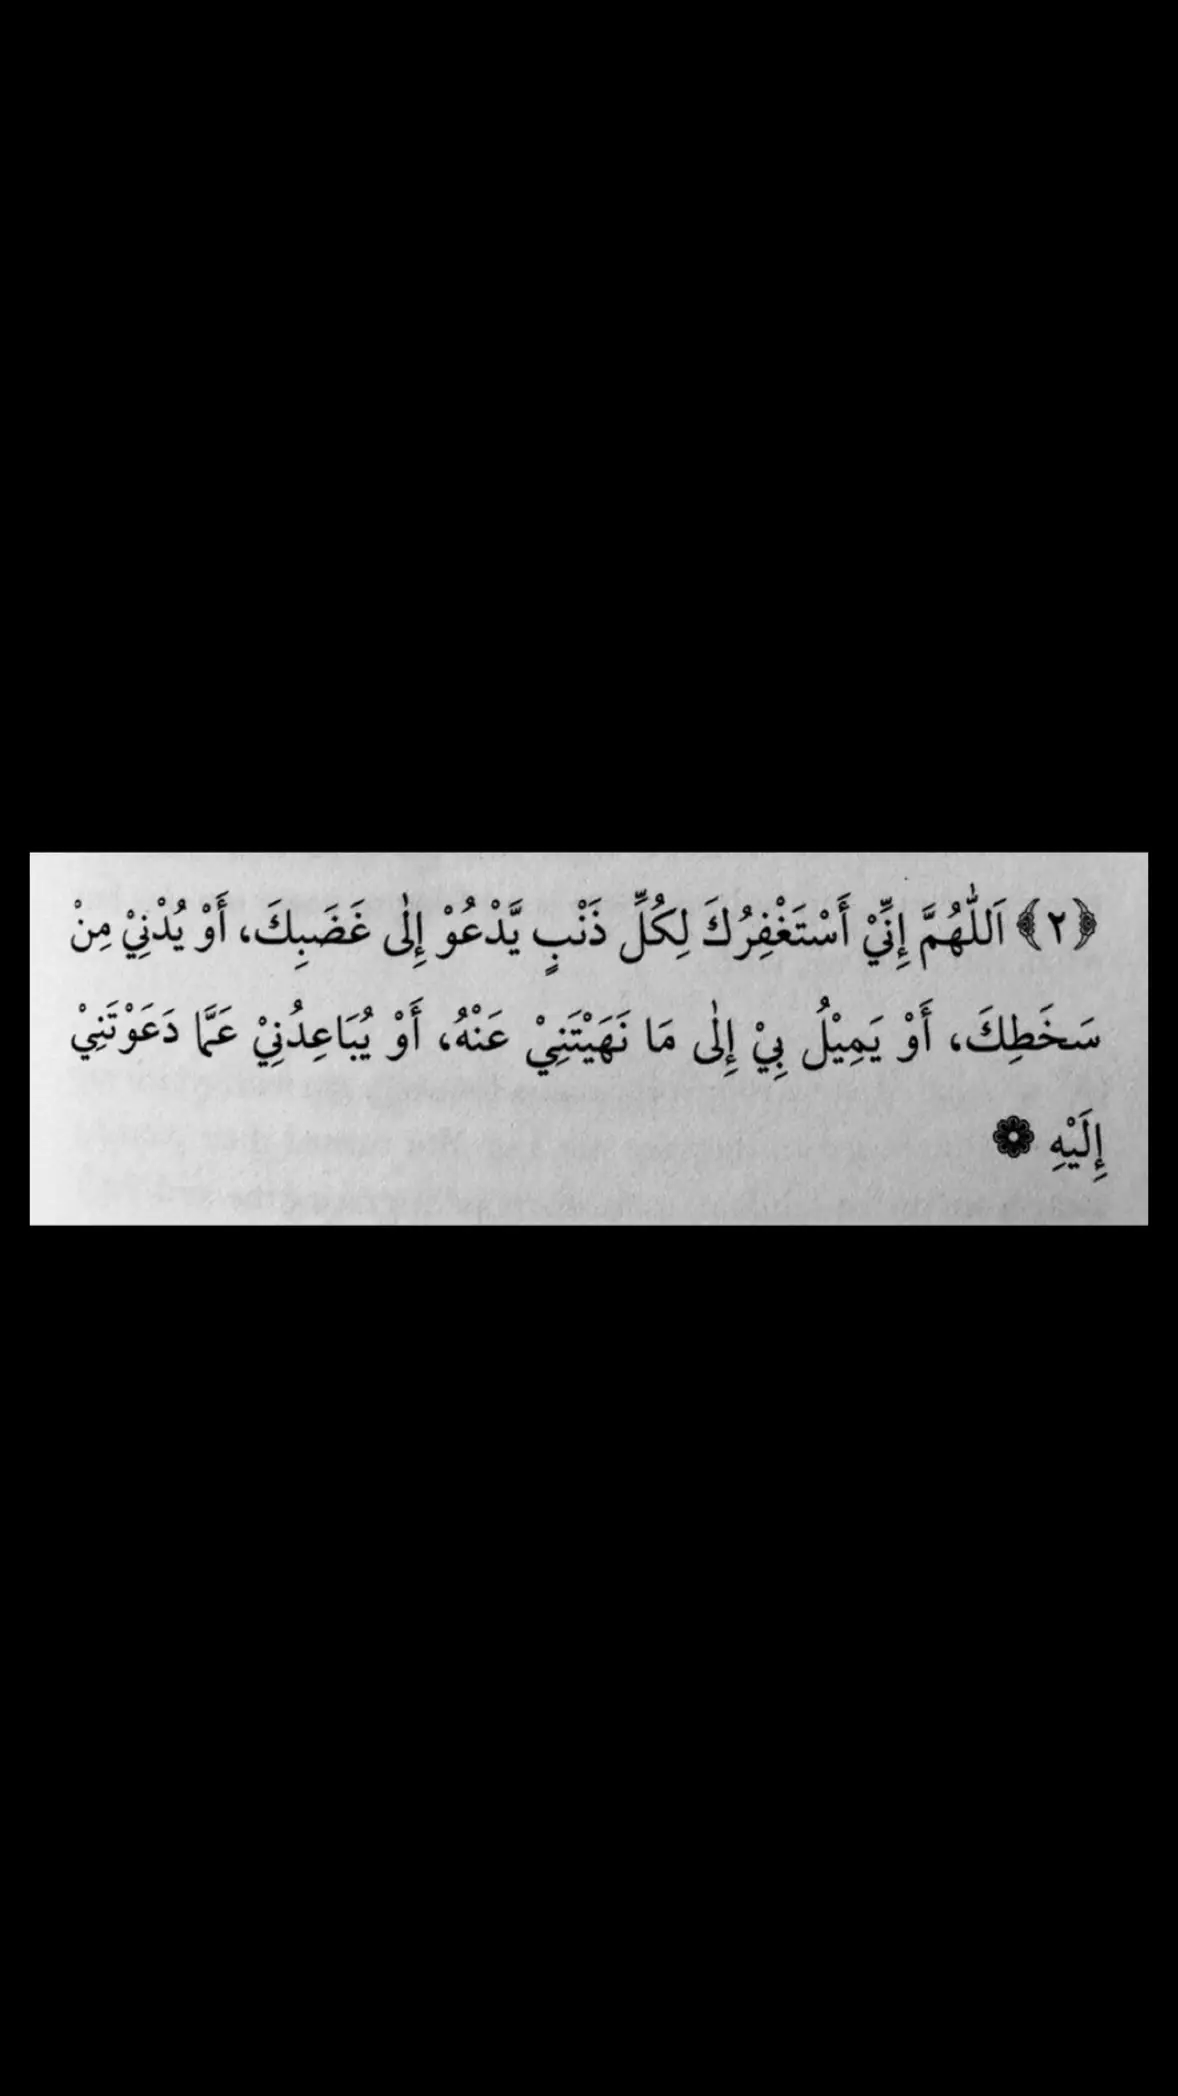 ﴿٢﴾ اَللّٰهُمَّ إِنِّيْ أَسْتَغْفِرُكَ لِكُلِّ ذَنْبٍ يَّدْعُوْ إِلٰى غَضَبِكَ، أَوْ يُدْنِيْ مِنْ
سَخَطِكَ، أَوْ يَمِيْلُ بِيْ إِلٰى مَا نَهَيْتَنِيْ عَنْهُ، أَوْ يُبَاعِدُنِيْ عَمَّا دَعَوْتَنِيْ
إِلَيْهِ